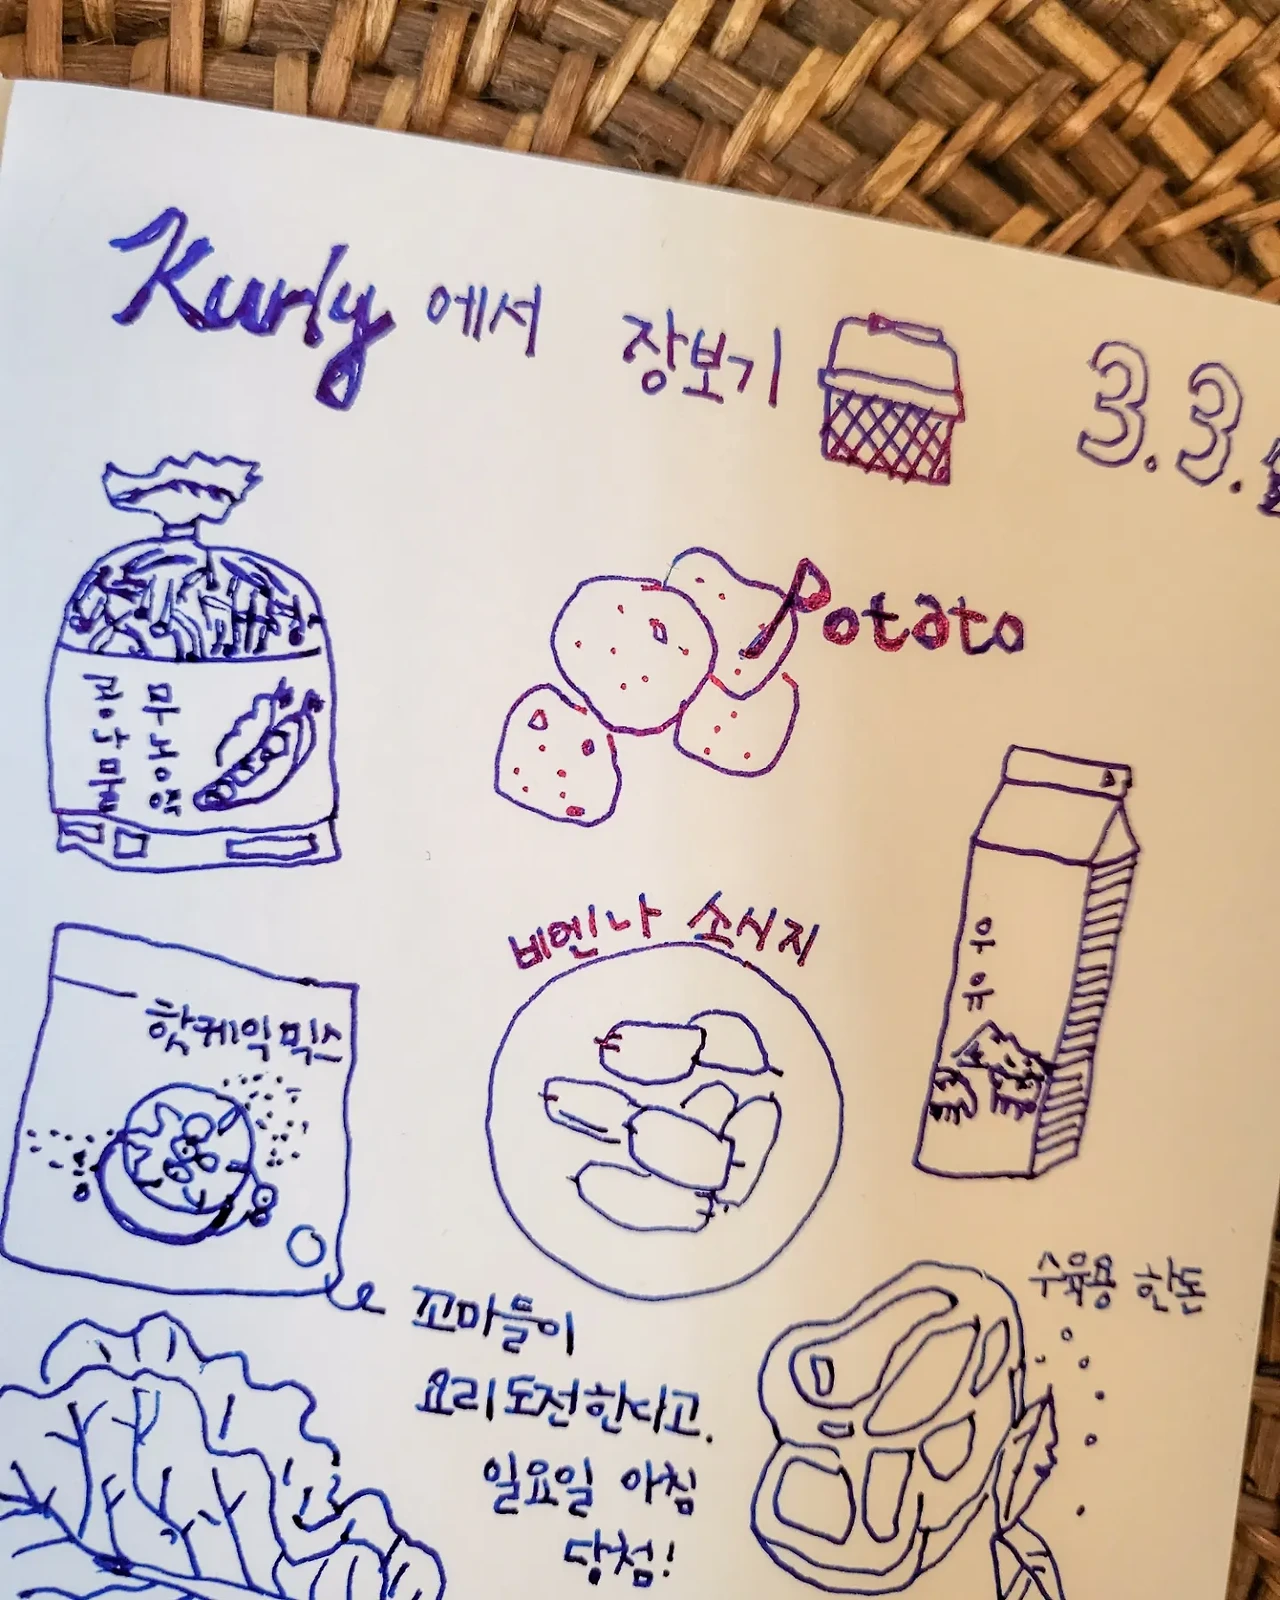 Kurly 에서 장보기 3.3.
Potato
무농약
콩나물
비엔나 소시지
우유
핫케익믹스
수육용 한돈
꼬마들이
요리도전한다고.
일요일 아침
당첨!